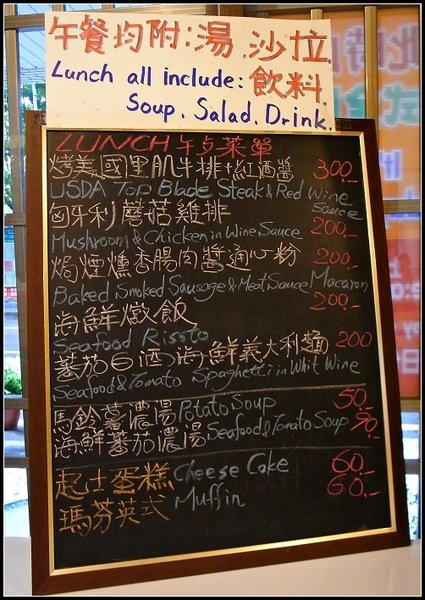 午餐均附:湯 沙拉
Lunch all include: 飲料
Soup. Salad. Drink.
LUNCH 午与菜單
烤美國里肌牛排+紅酒醬 300.-
USDA Top Blade Steak & Red Wine Sauce
匈牙利蘑菇雞排 200.-
Mushroom & Chicken in Wine Sauce
焗煙燻香腸肉醬通心粉 200.-
Baked Smoked Sausage & Meat Sauce Macaroni
海鮮燉飯 200.-
Seafood Rissto
蕃茄白酒海鮮義大利麵 200
Seafood & Tomato Spaghetti in Whit Wine
馬鈴薯濃湯 Potato Soup 50.-
海鮮蕃茄濃湯 Seafood & Tomato Soup 70.-
起士蛋糕 Cheese Cake 60.-
瑪芬英式 Muffin 60.-